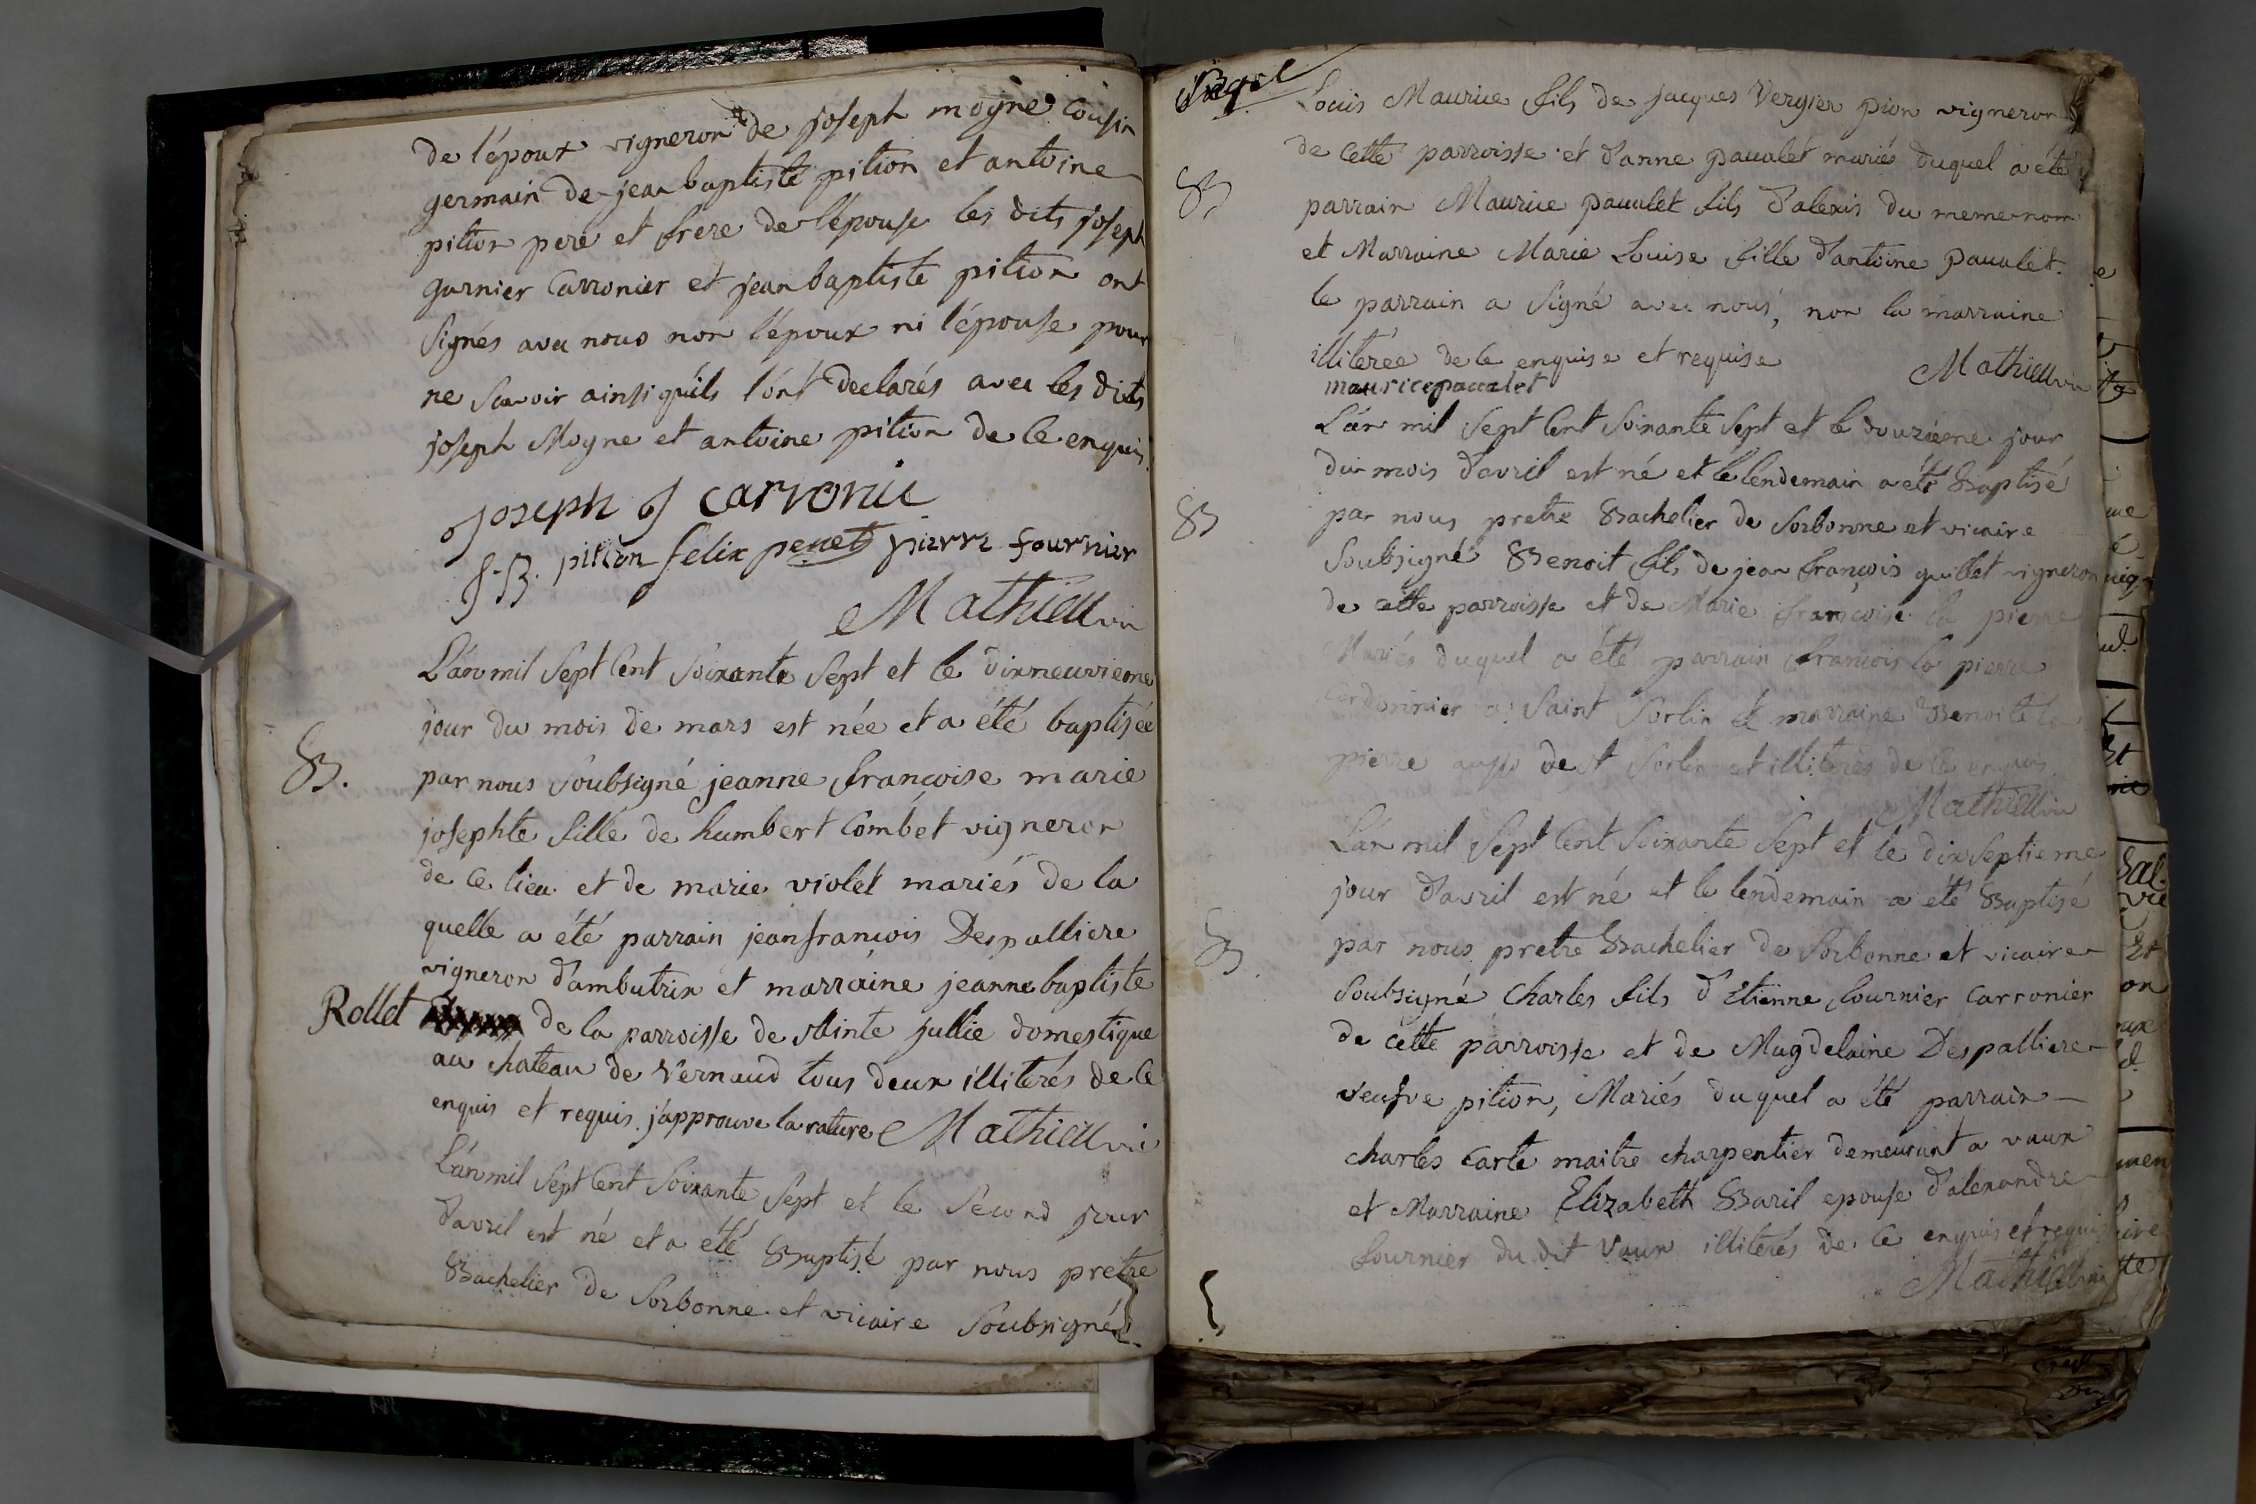 de l'époux vigneron de joseph mogne Cousin
germain de jean baptiste pition et antoine
pition pere et frere de l'épouse les dits joseph
garnier Carronier et jean baptiste pition ont
signés avec nous non l'époux ni l'épouse pour
ne scavoir ainsi qu'ils l'ont declarés avec les dits
joseph Mogne et antoine pition de ce enquis
joseph j carronié
J. B. pition felix penet pierre fournier
Mathieu vic
L'an mil sept cent soixante sept et le dixneuvieme
jour du mois de mars est née et a été baptisée
B. par nous soubsigné jeanne françoise marie
josephte fille de humbert Combet vigneron
de ce lieu et de marie violet mariés de la
quelle a été parrain jeanfrancois Despalliere
vigneron d'ambutrix et marraine jeanne baptiste
Rollet de la parroisse de stinte jullie domestique
au chateau de Vernaud tous deux illiterés de ce
enquis et requis. j'approuve la rature Mathieu vic
L'an mil sept cent soixante sept et le second jour
d'avril est né et a été Baptisé par nous pretre
Bachelier de sorbonne et vicaire soubsigné
Louis Maurice fils de jacques Vergier pion vigneron
de cette parroisse et d'anne pauvalet mariés duquel a été
B parrain Maurice pauvalet fils d'alexis du meme nom
et Marraine Marie Louise fille d'antoine pauvalet.
le parrain a signé avec nous, non la marraine
illiteree de ce enquise et requise Mathieu vic
L'an mil sept cent soixante sept et le douzieme jour
du mois d'avril est né et le lendemain a été Baptisé
B par nous pretre Bachelier de sorbonne et vicaire
soubsigné Benoit fils de jean françois guillet vigneron
de cette parroisse et de Marie françoise la pierre
Mariés duquel a été parrain françois la pierre
cordonnier a saint sorlin et marraine Benoite la
pierre aussi de st sorlin et illiterés de ce enquis
Mathieu vic
L'an mil sept cent soixante sept et le dixseptieme
jour d'avril est né et le lendemain a été Baptisé
B. par nous pretre Bachelier de sorbonne et vicaire
soubsigné charles fils d'Etienne fournier carronier
de cette parroisse et de Magdelaine Despalliere
veufve pition, Mariés duquel a été parrain
charles carte maitre charpentier demeurant a vaux
et Marraine Elizabeth Baril epouse d'alexandre
fournier du dit vaux illiterés de ce enquis et requis
Mathieu vic